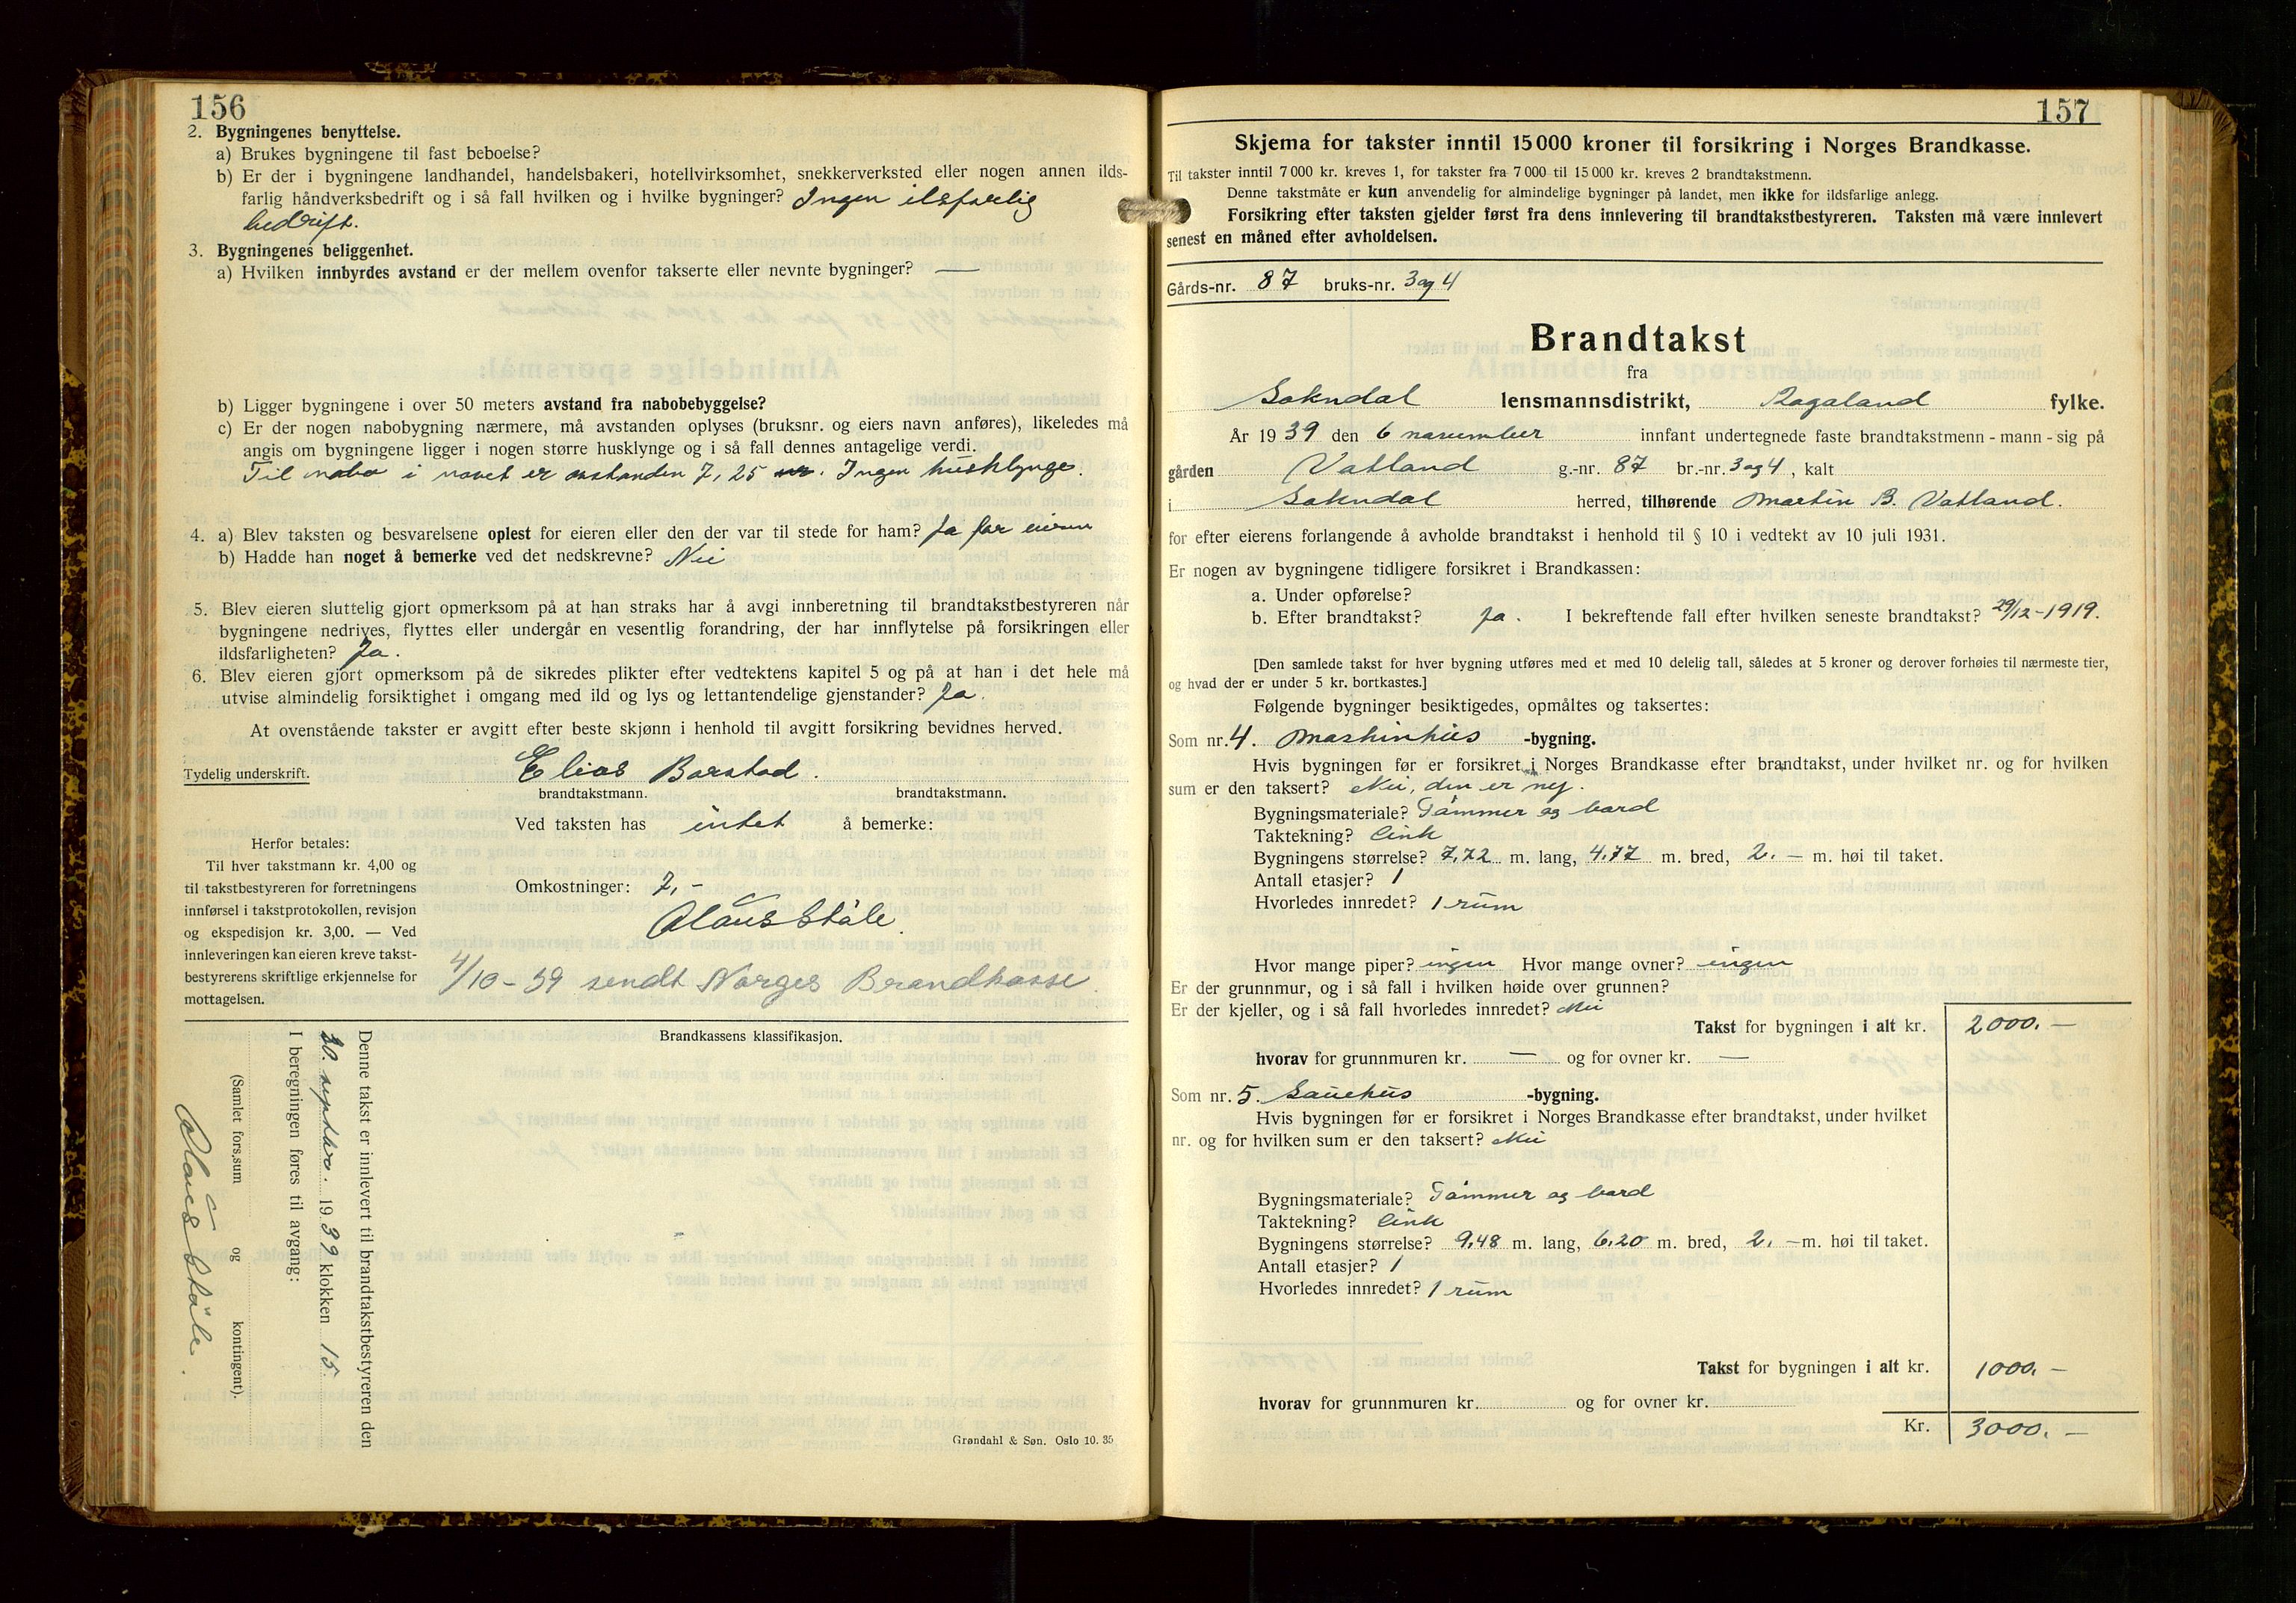 156
2. Bygningenes benyttelse.
a) Brukes bygningene til fast beboelse?
b) Er der i bygningene landhandel, handelsbakeri, hotellvirksomhet, snekkerverksted eller nogen annen ilds-
farlig håndverksbedrift og i så fall hvilken og i hvilke bygninger? Ingen ilsfarlig
bedrift.
3. Bygningenes beliggenhet.
a) Hvilken innbyrdes avstand er der mellem ovenfor takserte eller nevnte bygninger? —
b) Ligger bygningene i over 50 meters avstand fra nabobebyggelse?
c) Er der nogen nabobygning nærmere, må avstanden oplyses (bruksnr. og eiers navn anføres), likeledes må
angis om bygningene ligger i nogen større husklynge og i så fall dennes antagelige verdi.
Til nabo i er avstanden 7,25 m. Ingen husklynge.
4. a) Blev taksten og besvarelsene oplest for eieren eller den der var til stede for ham? Ja for eieren
b) Hadde han noget å bemerke ved det nedskrevne? Nei
5. Blev eieren sluttelig gjort opmerksom på at han straks har å avgi innberetning til brandtakstbestyreren når
bygningene nedrives, flyttes eller undergår en vesentlig forandring, der har innflytelse på forsikringen eller
ildsfarligheten? Ja.
6. Blev eieren gjort opmerksom på de sikredes plikter efter vedtektens kapitel 5 og på at han i det hele må
utvise almindelig forsiktighet i omgang med ild og lys og lettantendelige gjenstander? Ja.
At ovenstående takster er avgitt efter beste skjønn i henhold til avgitt forsikring bevidnes herved.
Tydelig underskrift. Elias Barstad.
brandtakstmann. brandtakstmann.
Ved taksten has intet å bemerke:
Herfor betales:
Til hver takstmann kr. 4,00 og
til takstbestyreren for forretningens
innførsel i takstprotokollen, revisjon
og ekspedisjon kr. 3,00. — Ved
innleveringen kan eieren kreve takst-
bestyrerens skriftlige erkjennelse for
mottagelsen.
Omkostninger: 7,-
Claus Ståle.
4/10-39 sendt Norges Brandkasse.
Brandkassens klassifikasjon.
Denne takst er innlevert til brandtakstbestyreren den
30. septbr. 1939 klokken 15.
I beregningen føres til avgang:
(Samlet fors.sum og kontingent).
Claus Ståle.
Grøndahl & Søn. Oslo 10. 35
157
Skjema for takster inntil 15 000 kroner til forsikring i Norges Brandkasse.
Til takster inntil 7 000 kr. kreves 1, for takster fra 7 000 til 15 000 kr. kreves 2 brandtakstmenn.
Denne takstmåte er kun anvendelig for almindelige bygninger på landet, men ikke for ildsfarlige anlegg.
Forsikring efter taksten gjelder først fra dens innlevering til brandtakstbestyreren. Taksten må være innlevert
senest en måned efter avholdelsen.
Gårds-nr. 87 bruks-nr. 3 og 4
Brandtakst
fra
Sokndal lensmannsdistrikt, Rogaland fylke.
År 1939 den 6 november innfant undertegnede faste brandtakstmenn - mann - sig på
gården Vatland g.-nr. 87 br.-nr. 3 og 4, kalt
i Sokndal herred, tilhørende Martin B. Vatland.
for efter eierens forlangende å avholde brandtakst i henhold til § 10 i vedtekt av 10 juli 1931.
Er nogen av bygningene tidligere forsikret i Brandkassen:
a. Under opførelse?
b. Efter brandtakst? Ja. I bekreftende fall efter hvilken seneste brandtakst? 29/12-1919.
[Den samlede takst for hver bygning utføres med et med 10 delelig tall, således at 5 kroner og derover forhøies til nærmeste tier,
og hvad der er under 5 kr. bortkastes.]
Følgende bygninger besiktigedes, opmåltes og taksertes:
Som nr. 4. Maskinhus -bygning.
Hvis bygningen før er forsikret i Norges Brandkasse efter brandtakst, under hvilket nr. og for hvilken
sum er den taksert? Nei, den er ny.
Bygningsmateriale? Tømmer og bord
Taktekning? Sink
Bygningens størrelse? 7,72 m. lang, 4,77 m. bred, 2.— m. høi til taket.
Antall etasjer? 1
Hvorledes innredet? 1 rum
Hvor mange piper? ingen Hvor mange ovner? ingen
Er der grunnmur, og i så fall i hvilken høide over grunnen?
Er der kjeller, og i så fall hvorledes innredet? Nei
Takst for bygningen i alt kr. 2000.—
hvorav for grunnmuren kr. — og for ovner kr. —
Som nr. 5. Sauehus -bygning.
Hvis bygningen før er forsikret i Norges Brandkasse efter brandtakst, under hvilket
nr. og for hvilken sum er den taksert? Nei
Bygningsmateriale? Tømmer og bord
Taktekning? Sink
Bygningens størrelse? 9,48 m. lang, 6,20 m. bred, 2.— m. høi til taket.
Antall etasjer? 1
Hvorledes innredet? 1 rum
Takst for bygningen i alt kr. 1000.—
hvorav for grunnmuren kr. og for ovner kr.
Kr. 3000.—